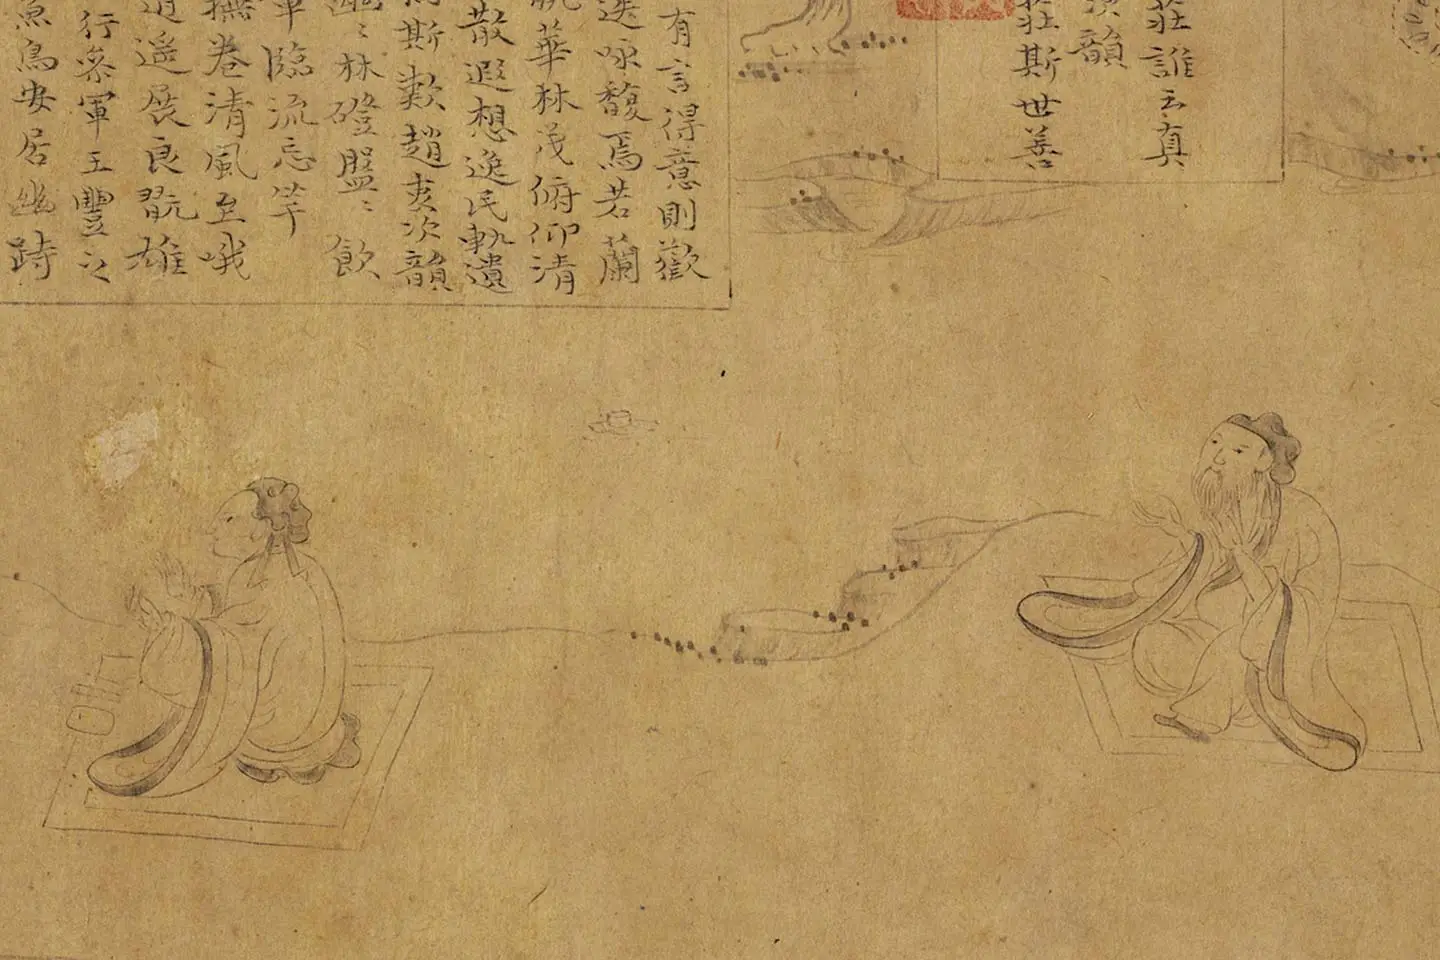 莊誰云真
韻
莊斯世善
有言得意則歡
詠馥焉若蘭
華林茂俯仰清
散遐想逸民軌遺
斯歎趙奕次韻
林磴盤〻飲
臨流忘竿
撫卷清風至哦
逍遥展良翫雄
行參軍王豐之
魚鳥安居幽跱